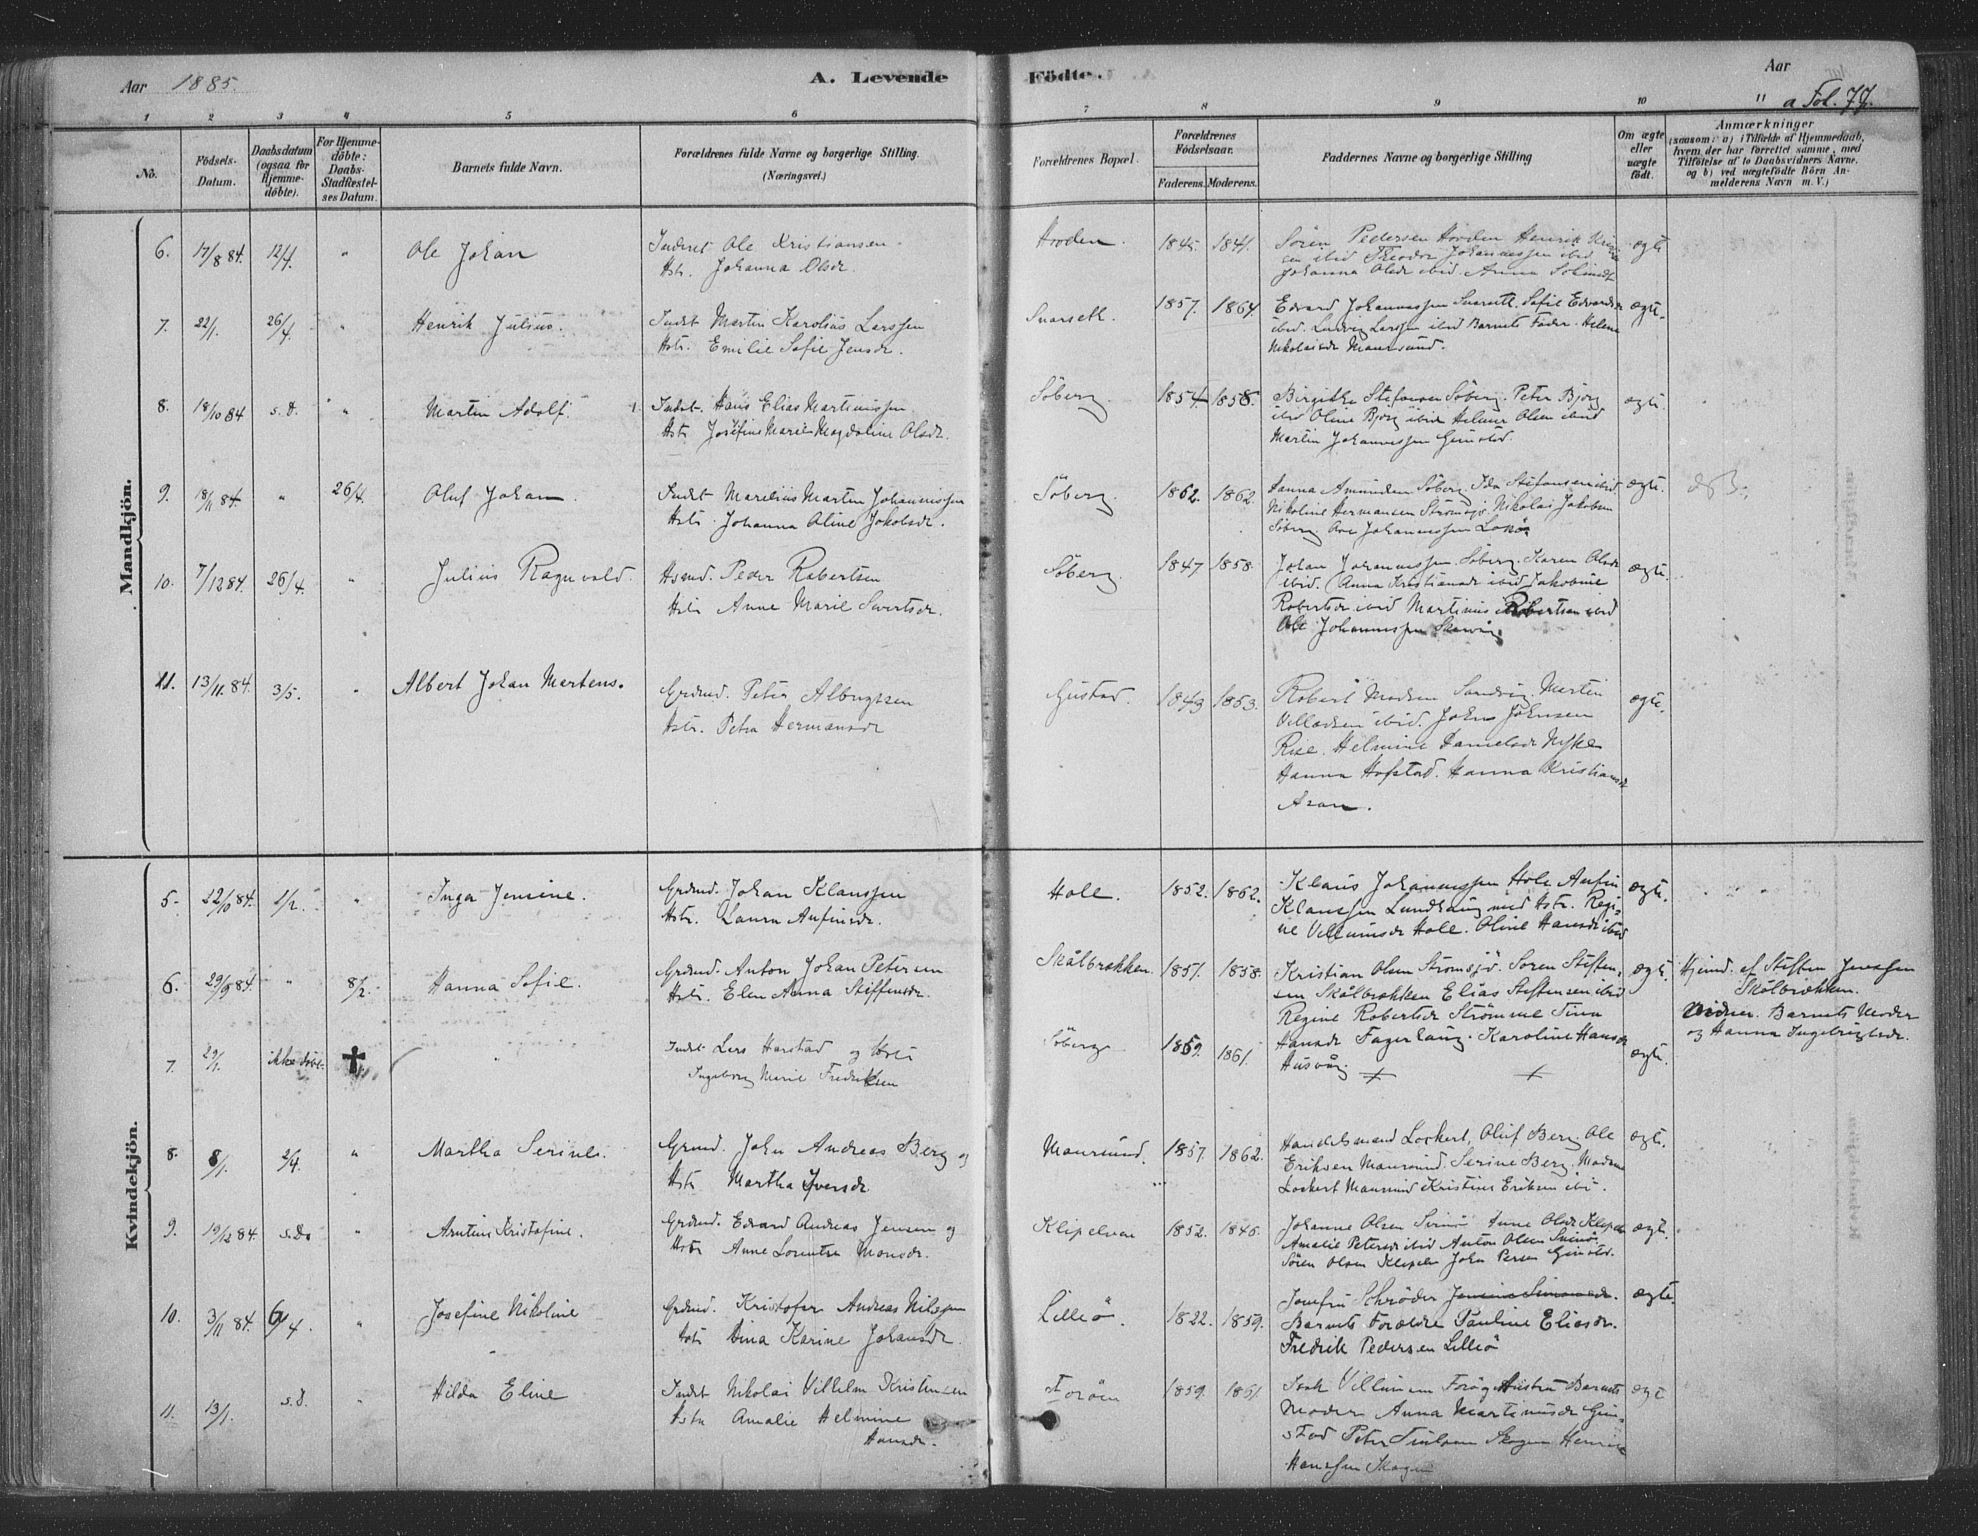 Aar 1885.
A. Levende Födte.
Aar
a Fol. 77.
1 2 3 4 5 6 7 8 9 10 11
No.
Födsels-Datum.
Daabsdatum (ogsaa for Hjemme-döbte).
For Hjemme-döbte: Daabs-Stadfæstel-ses Datum.
Barnets fulde Navn.
Forældrenes fulde Navne og borgerlige Stilling.
(Næringsvei.)
Forældrenes Bopæl.
Forældrenes Födselsaar.
Faderens. Moderens.
Faddernes Navne og borgerlige Stilling
Om ægte eller uægte födt.
Anmærkninger
(saasom: a) i Tilfælde af Hjemmedaab,
hvem der har forrettet samme, med
Tilföielse af to Daabsvidners Navne.
og b) ved uægtefödte Börn An-
melderens Navn m. V.)
Mandkjön.
6. 17/8 84. 12/4. " Ole Johan
Inderst Ole Kristiansen
Hstr. Johanna Olsdr.
Hovden. 1845 1841.
Sören Pedersen Hovden Henrik
ibid Theodor Johannessen ibid
Johanna Olsdr ibid. Anna
ægte
7. 22/1. 26/4. " Henrik Julius.
Indst Martin Karolius Larssen
Hstr. Emilie Sofie Jensdr.
1857. 1864.
Edvard Johannessen Sofie
ibid. Ludvig Larssen ibid Barnets Fader. Helene
Nikolaisdr Maursund.
ægte.
8. 18/10 84 s.d. " Martin Adolf.
Indst. Hans Elias Martinussen
Hstr Josefine Marie Magdaline Olsdr.
Söberg. 1854 1858.
Birgitte Söberg. Peter Bjerg
ibid Oline Bjerg ibid Helmer Olsen ibid
Martin Johannessen
ægte.
9. 18/11 84. " 26/4. Oluf Johan.
Indst Marelius Martin Johannessen
Hstr. Johanna Oline Jakobsdr.
Söberg. 1862. 1862.
Hanna Söberg Ida Stefansen ibid
Nikoline Hermansen Nikolai Jakobsen
Söberg Johannessen
ægte.
10. 7/12 84. 26/4. " Julius Ragnvald.
Hsmd. Peder Robertsen
Hstr Anne Marie Sivertsdr.
Söberg. 1847 1858
Johan Johannessen Söberg. Karen Olsdr
ibid. Anna Kristiansdr ibid Jakobine
Robertsdr ibid Martinus Robertsen ibid
Ole Johannessen
ægte.
11. 13/11 84. 3/5. " Albert Johan Martens.
Grdmd. Peter Albrigtsen
Hstr. Petra Hermansdr
Gustad. 1843 1853.
Robert Madsen Sandvig. Martin
Villadsen ibid. Johns Johnsen
Rise. Helmine Danielsdr Nyke
Hanna Hofstad. Hanna Kristiansdr
ægte.
Kvindekjön.
5. 22/10 84. 1/2. " Inga Jensine.
Grdmd. Johan Klaussen
Hstr. Laura Anfinsdr.
Holle. 1852. 1862.
Klaus Johannessen Hole Anfin
Klaussen Lundhaug med Hstr. Regi-
ne Villumsdr Holle. Oline Hansdr ibid
ægte.
6. 29/9 84. " 8/2. Hanna Sofie.
Grdmd. Anton Johan Petersen
Hstr. Elen Anna Steffensdr.
Skålbrækken. 1851. 1858.
Kristian Olsen Strömsjö. Soren Steffen-
sen Skålbrækken Elias Steffensen ibid
Regine Robertsdr Strömme Tina
Hansdr Fagerhaug. Karoline Hansdr
Husvåg.
ægte.
Hjemd. af Steffen Jenssen
Skålbrækken.
Vidner. Barnets Moder
og Hanna Ingebrigtsdr.
7. 29/1. ikke döbt. †
Indst Lars Harstad og Hstr
Ingeborg Marie Fredriksen
Söberg 1859. 1861. ægte.
8. 8/1. 2/4. " Martha Serine.
Grdmd. John Andreas Berg og
Hstr Martha Iversdr
Maursund. 1857. 1862.
Handelsmand Lockert, Oluf Berg. Ole
Eriksen Maursund. Serine Berg. Madame
Lockert Maursund Kristine Eriksen ibi.
ægte.
9. 19/12 84. s.d. " Kristofine.
Grdmd. Edvard Andreas Jensen og
Hstr Anne Lorentse Monsdr.
1852. 1846.
Johanne Olsen Anne Olsdr
Amalie Petersdr ibid Anton Olsen
Sören Olsen John
ægte.
10. 3/11 84. 6/4. " Josefine Nikoline
Grdmd. Kristofer Andreas Nilssen
Hstr Dina Karine Johansdr.
Lilleö. 1822. 1859.
Jomfru Schröder
Barnets Forældre Pauline Eliasdr.
Fredrik Pedersen Lilleö
ægte.
11. 13/1. s.d. " Hilda Eline
Indst Nikolai Villelm Kristensen
Hstr Amalie Helmine
Hansdr.
Foröen 1859. 1861
Isak Hustru Barnets
Moder Anna Martinusdr
Peter Skogen
Hanssen Skogen
ægte